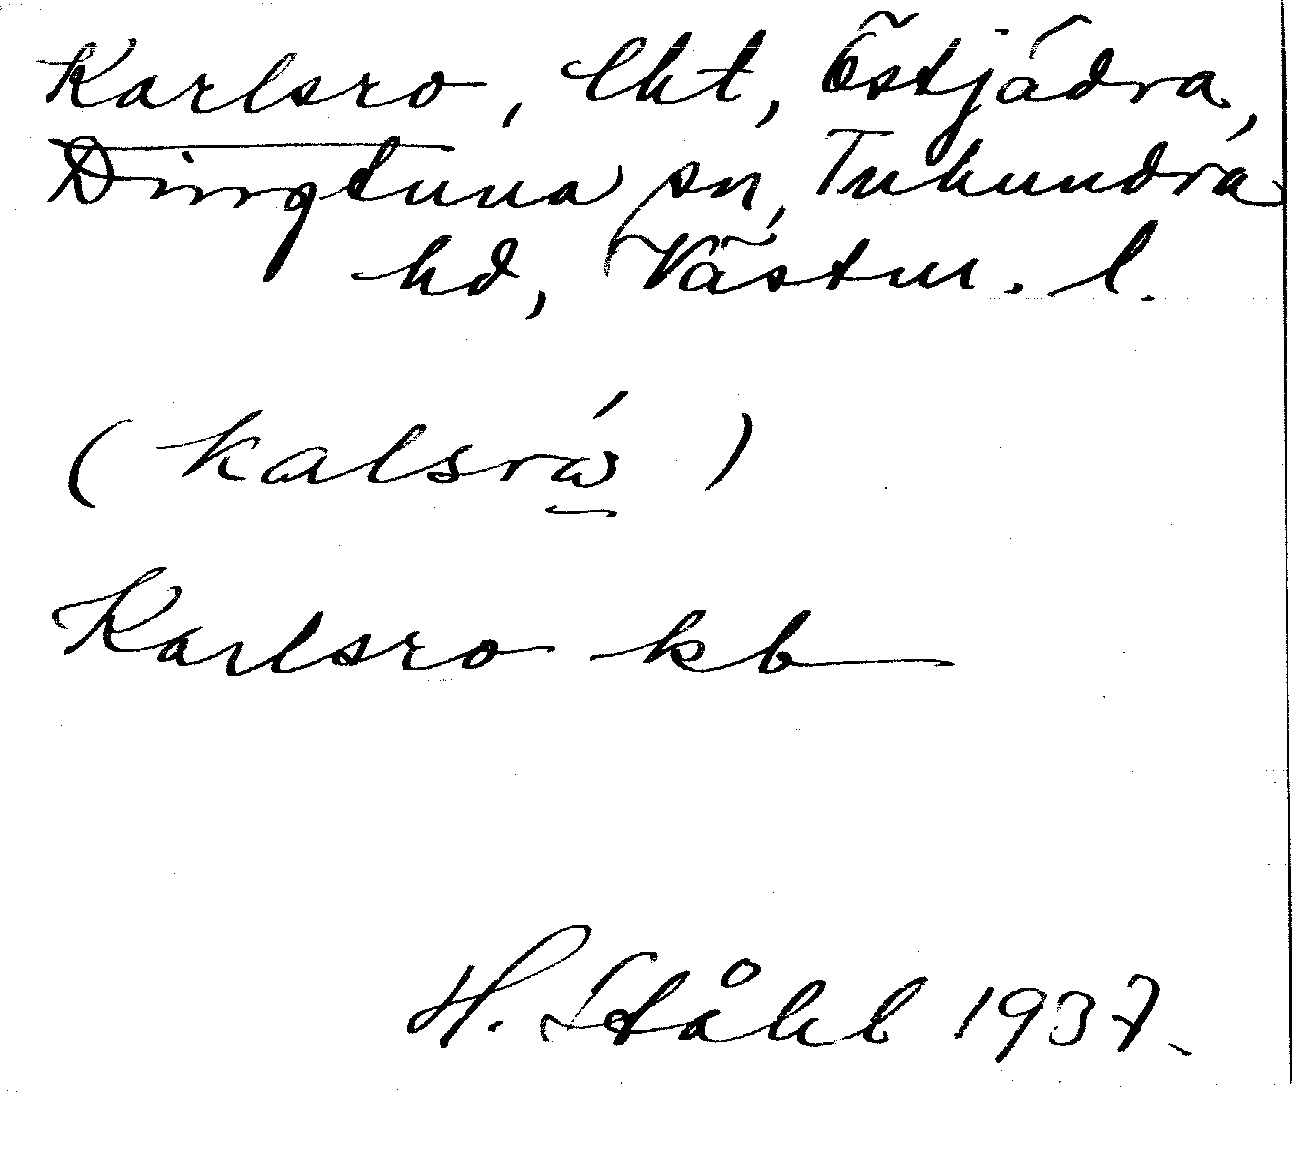 Karlsro, lht, Östjädra,
Dingtuna sn, Tuhundra
hd, Västm. l.
(kalsró)
Karlsro kb
H. Ståhl 1937.